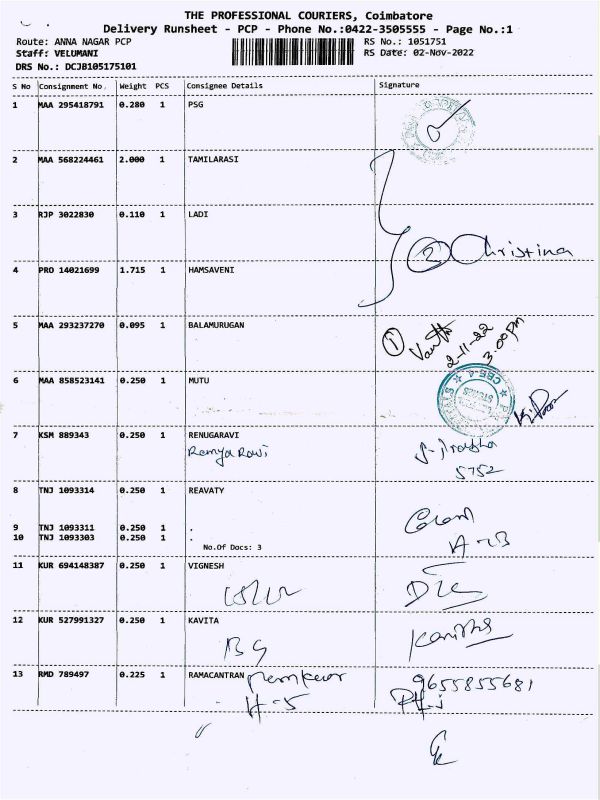 THE PROFESSIONAL COURIERS, Coimbatore
Delivery Runsheet - PCP - Phone No.:0422-3505555 - Page No.:1
Route: ANNA NAGAR PCP RS No.: 1051751
Staff: VELUMANI RS Date: 02-Nov-2022
DRS No.: DCJB105175101
S No Consignment No. Weight PCS Consignee Details Signature
1 MAA 295418791 0.280 1 PSG
2 MAA 568224461 2.000 1 TAMILARASI
3 RJP 3022830 0.110 1 LADI
2 Christina
4 PRO 14021699 1.715 1 HAMSAVENI
5 MAA 293237270 0.095 1 BALAMURUGAN
1 2-11-22
3.00 PM
CBE-4
6 MAA 858523141 0.250 1 MUTU
7 KSM 889343 0.250 1 RENUGARAVI
Remya Ravi
5752
8 TNJ 1093314 0.250 1 REAVATY
9 TNJ 1093311 0.250 1 .
10 TNJ 1093303 0.250 1 .
No.Of Docs: 3
11 KUR 694148387 0.250 1 VIGNESH
12 KUR 527991327 0.250 1 KAVITA
13 RMD 789497 0.225 1 RAMACANTRAN
9655855681
H-5